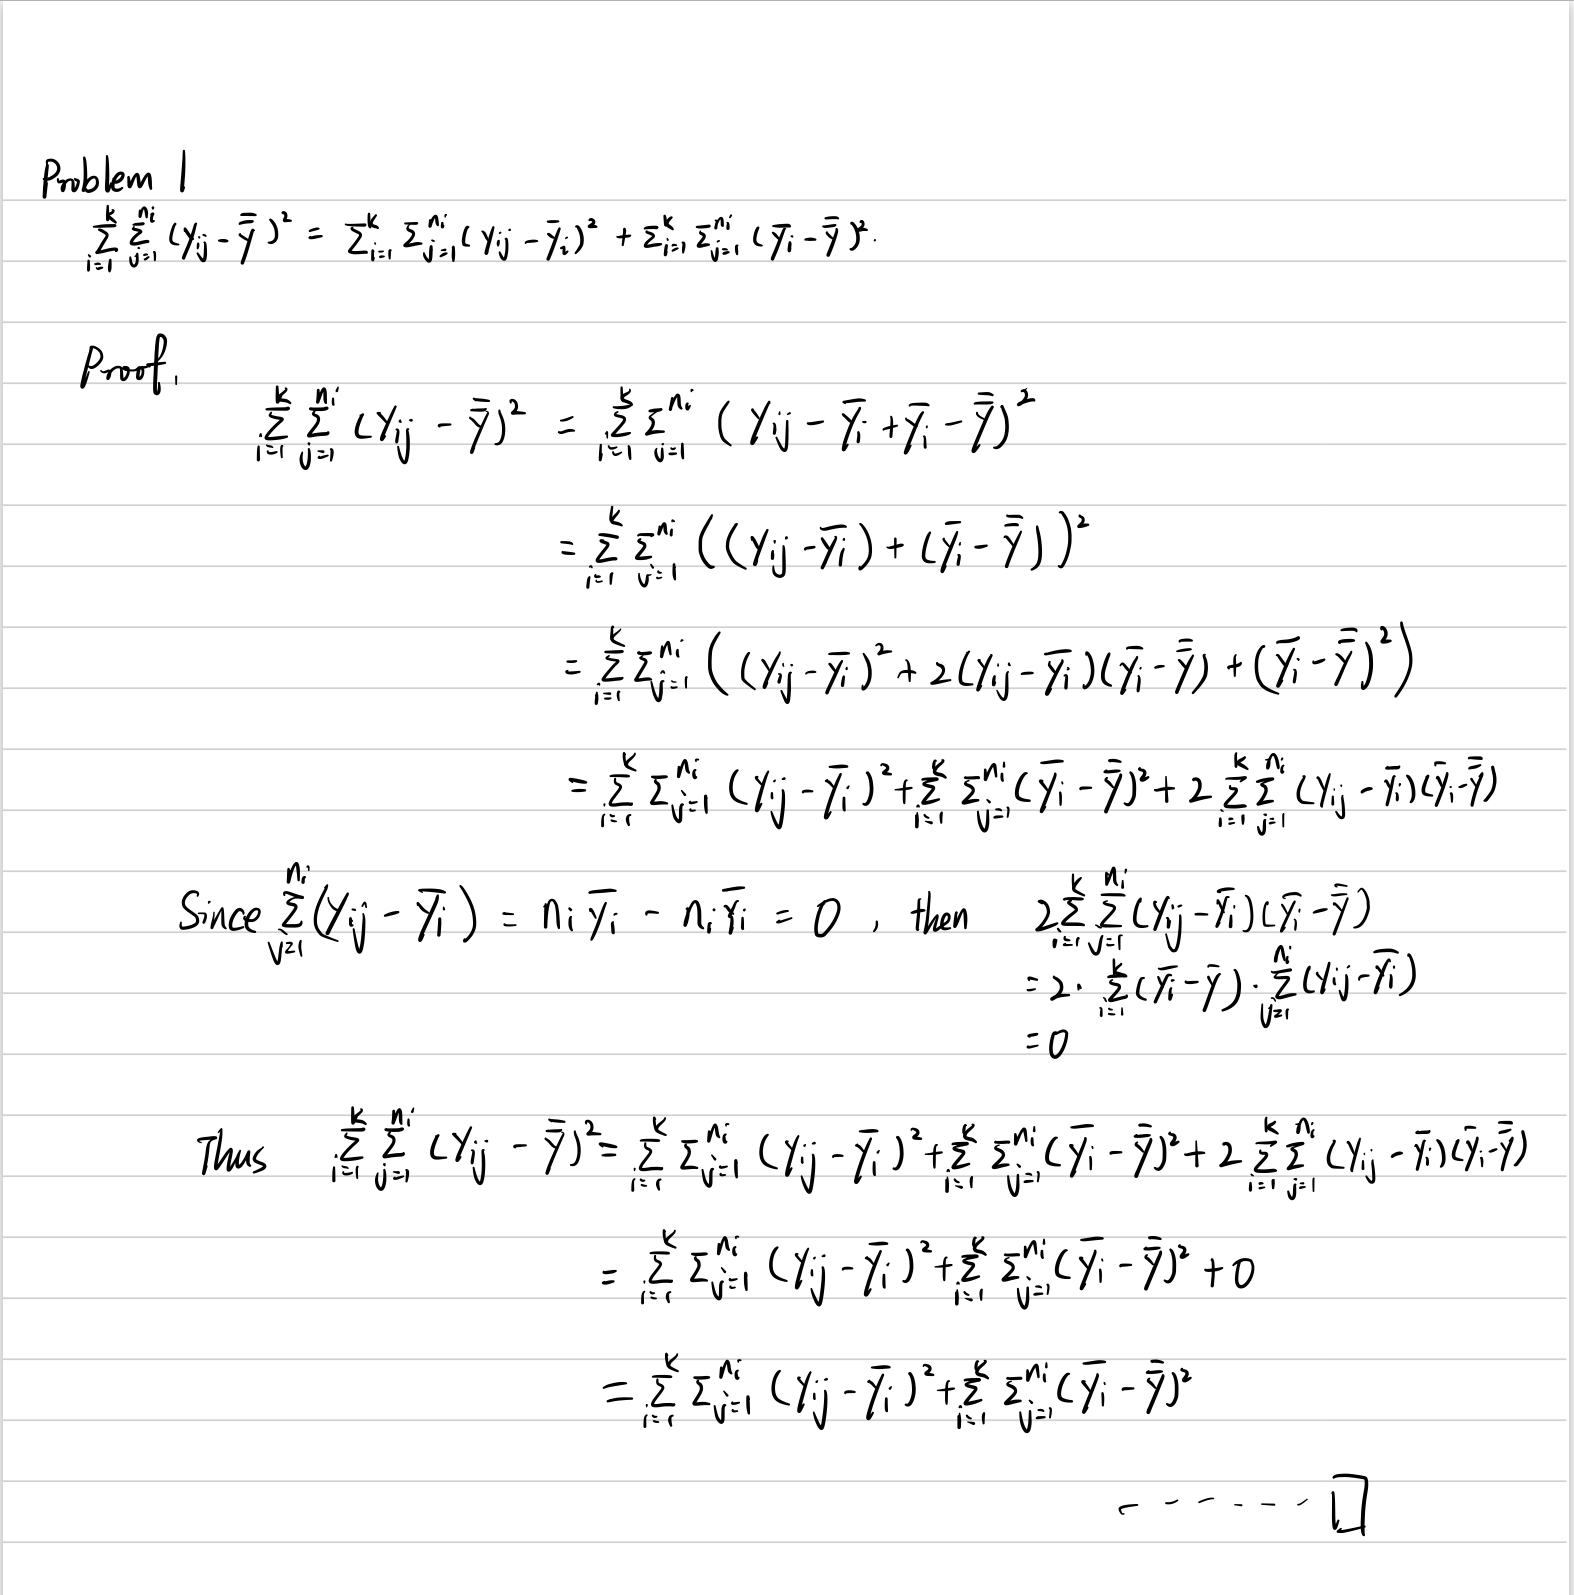 Problem 1
$\sum_{i=1}^{k} \sum_{j=1}^{n_i} (y_{ij} - \bar{\bar{y}})^2 = \sum_{i=1}^{k} \sum_{j=1}^{n_i} (y_{ij} - \bar{y}_i)^2 + \sum_{i=1}^{k} \sum_{j=1}^{n_i} (\bar{y}_i - \bar{\bar{y}})^2.$
Proof.
$\sum_{i=1}^{k} \sum_{j=1}^{n_i} (y_{ij} - \bar{\bar{y}})^2 = \sum_{i=1}^{k} \sum_{j=1}^{n_i} (y_{ij} - \bar{y}_i + \bar{y}_i - \bar{\bar{y}})^2$
$= \sum_{i=1}^{k} \sum_{j=1}^{n_i} ((y_{ij} - \bar{y}_i) + (\bar{y}_i - \bar{\bar{y}}))^2$
$= \sum_{i=1}^{k} \sum_{j=1}^{n_i} ((y_{ij} - \bar{y}_i)^2 + 2(y_{ij} - \bar{y}_i)(\bar{y}_i - \bar{\bar{y}}) + (\bar{y}_i - \bar{\bar{y}})^2)$
$= \sum_{i=1}^{k} \sum_{j=1}^{n_i} (y_{ij} - \bar{y}_i)^2 + \sum_{i=1}^{k} \sum_{j=1}^{n_i} (\bar{y}_i - \bar{\bar{y}})^2 + 2 \sum_{i=1}^{k} \sum_{j=1}^{n_i} (y_{ij} - \bar{y}_i)(\bar{y}_i - \bar{\bar{y}})$
Since $\sum_{j=1}^{n_i} (y_{ij} - \bar{y}_i) = n_i \bar{y}_i - n_i \bar{y}_i = 0$, then $2 \sum_{i=1}^{k} \sum_{j=1}^{n_i} (y_{ij} - \bar{y}_i)(\bar{y}_i - \bar{\bar{y}})$
$= 2 \cdot \sum_{i=1}^{k} (\bar{y}_i - \bar{y}) \cdot \sum_{j=1}^{n_i} (y_{ij} - \bar{y}_i)$
$= 0$
Thus $\sum_{i=1}^{k} \sum_{j=1}^{n_i} (y_{ij} - \bar{\bar{y}})^2 = \sum_{i=1}^{k} \sum_{j=1}^{n_i} (y_{ij} - \bar{y}_i)^2 + \sum_{i=1}^{k} \sum_{j=1}^{n_i} (\bar{y}_i - \bar{\bar{y}})^2 + 2 \sum_{i=1}^{k} \sum_{j=1}^{n_i} (y_{ij} - \bar{y}_i)(\bar{y}_i - \bar{\bar{y}})$
$= \sum_{i=1}^{k} \sum_{j=1}^{n_i} (y_{ij} - \bar{y}_i)^2 + \sum_{i=1}^{k} \sum_{j=1}^{n_i} (\bar{y}_i - \bar{\bar{y}})^2 + 0$
$= \sum_{i=1}^{k} \sum_{j=1}^{n_i} (y_{ij} - \bar{y}_i)^2 + \sum_{i=1}^{k} \sum_{j=1}^{n_i} (\bar{y}_i - \bar{\bar{y}})^2$
------□